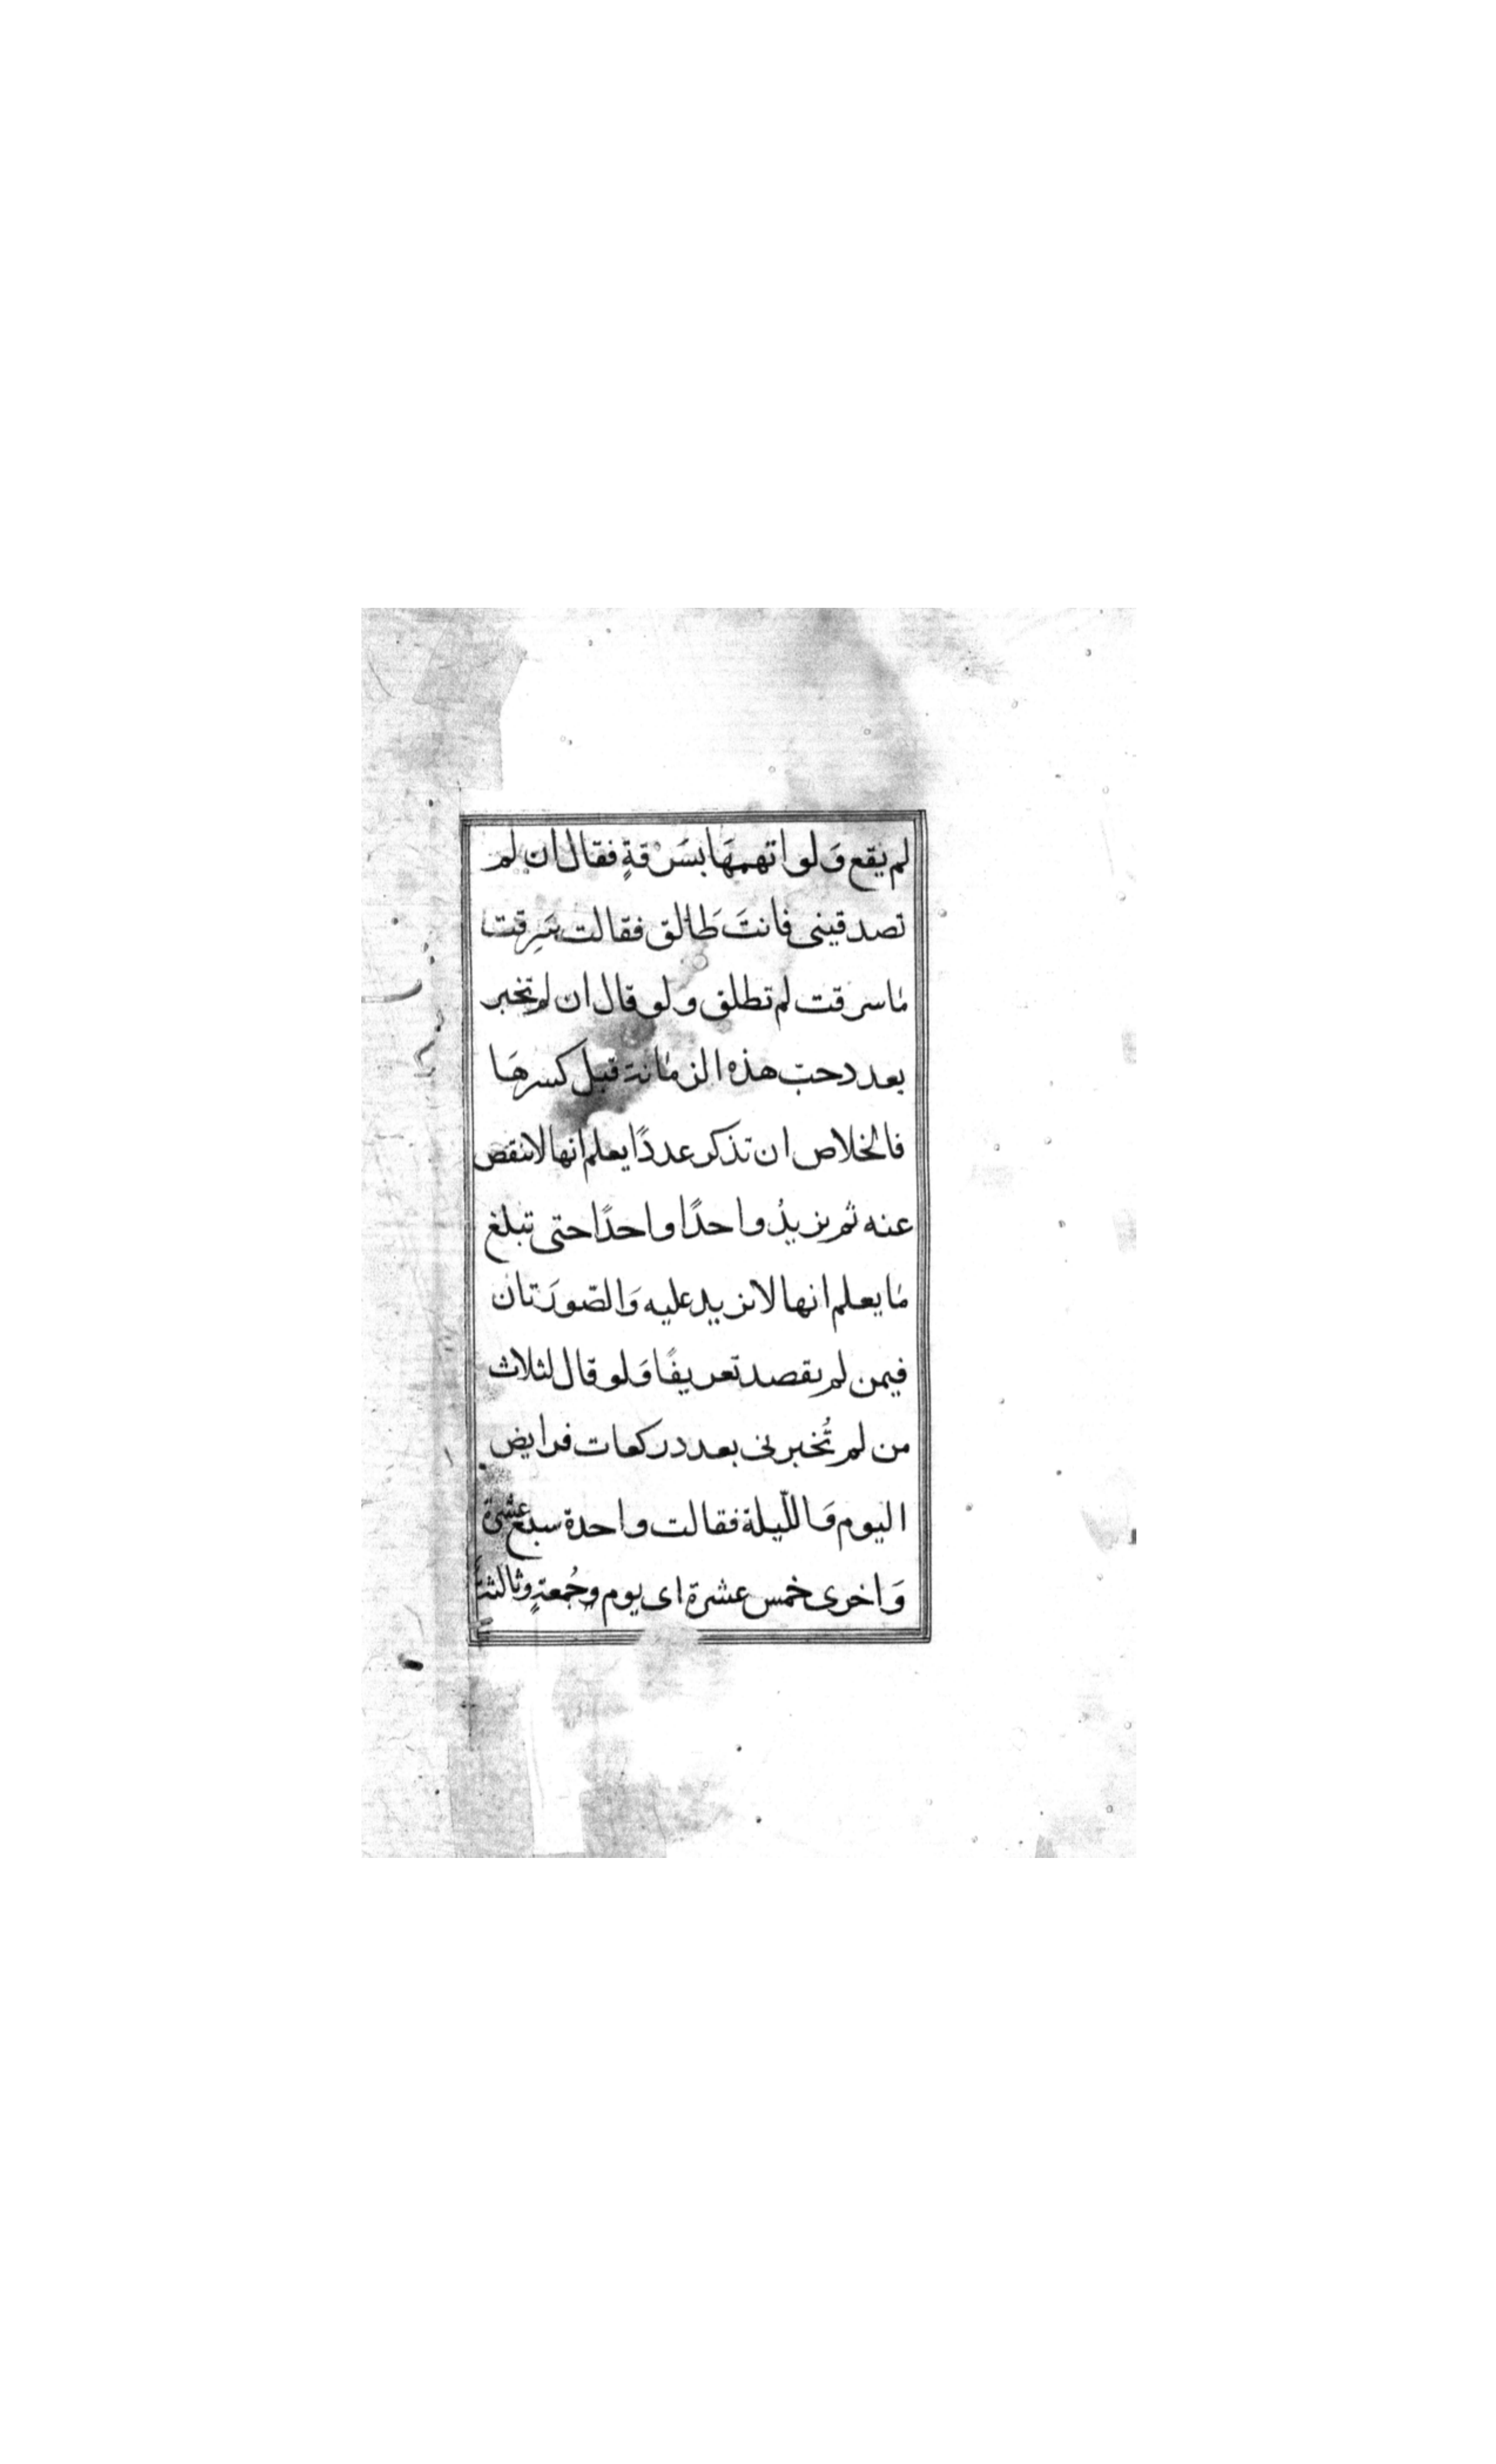 لم يقع وَلو اتهمهَا بسَرقةٍ فقال ان لم
تصدقينى فانتَ طَالق فقالت سَرِقت
مَا سرقت لم تطلق ولو قال ان لم تخبر
بعدد حبّ هذه الزمَانة قبل كسرهَا
فالخلاص ان تذكر عددًا يعلم انها لا تنقص
عنه ثم يزيدُ واحدًا واحدًا حتى تبلغ
مَا يعلم انها لا تزيد عليه وَالصّورَتان
فيمن لم يقصد تعريفًا وَلو قال لثلاث
من لم تُخبرنى بعدد ركعات فرايض
اليوم وَاللّيلة فقالت واحدة سبع عشرة
وَاخرى خمس عشرة اى يوم وجُمعةٍ وثالثة